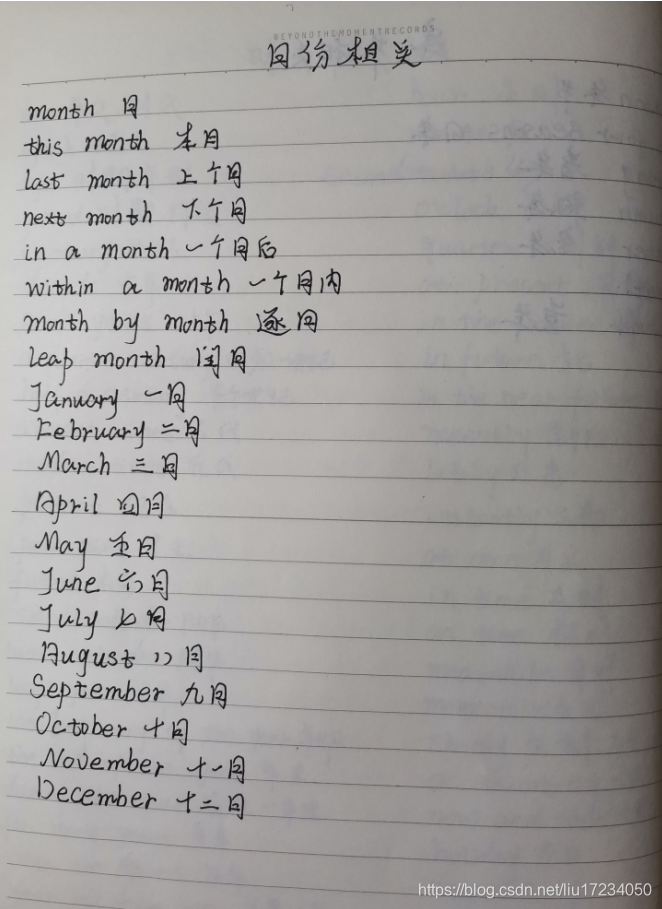 BEYONDTHEMOMENTRECORDS
月份相关
month 月
this month 本月
last month 上个月
next month 下个月
in a month 一个月后
within a month 一个月内
month by month 逐月
leap month 闰月
January 一月
February 二月
March 三月
April 四月
May 五月
June 六月
July 七月
August 八月
September 九月
October 十月
November 十一月
December 十二月
https://blog.csdn.net/liu17234050